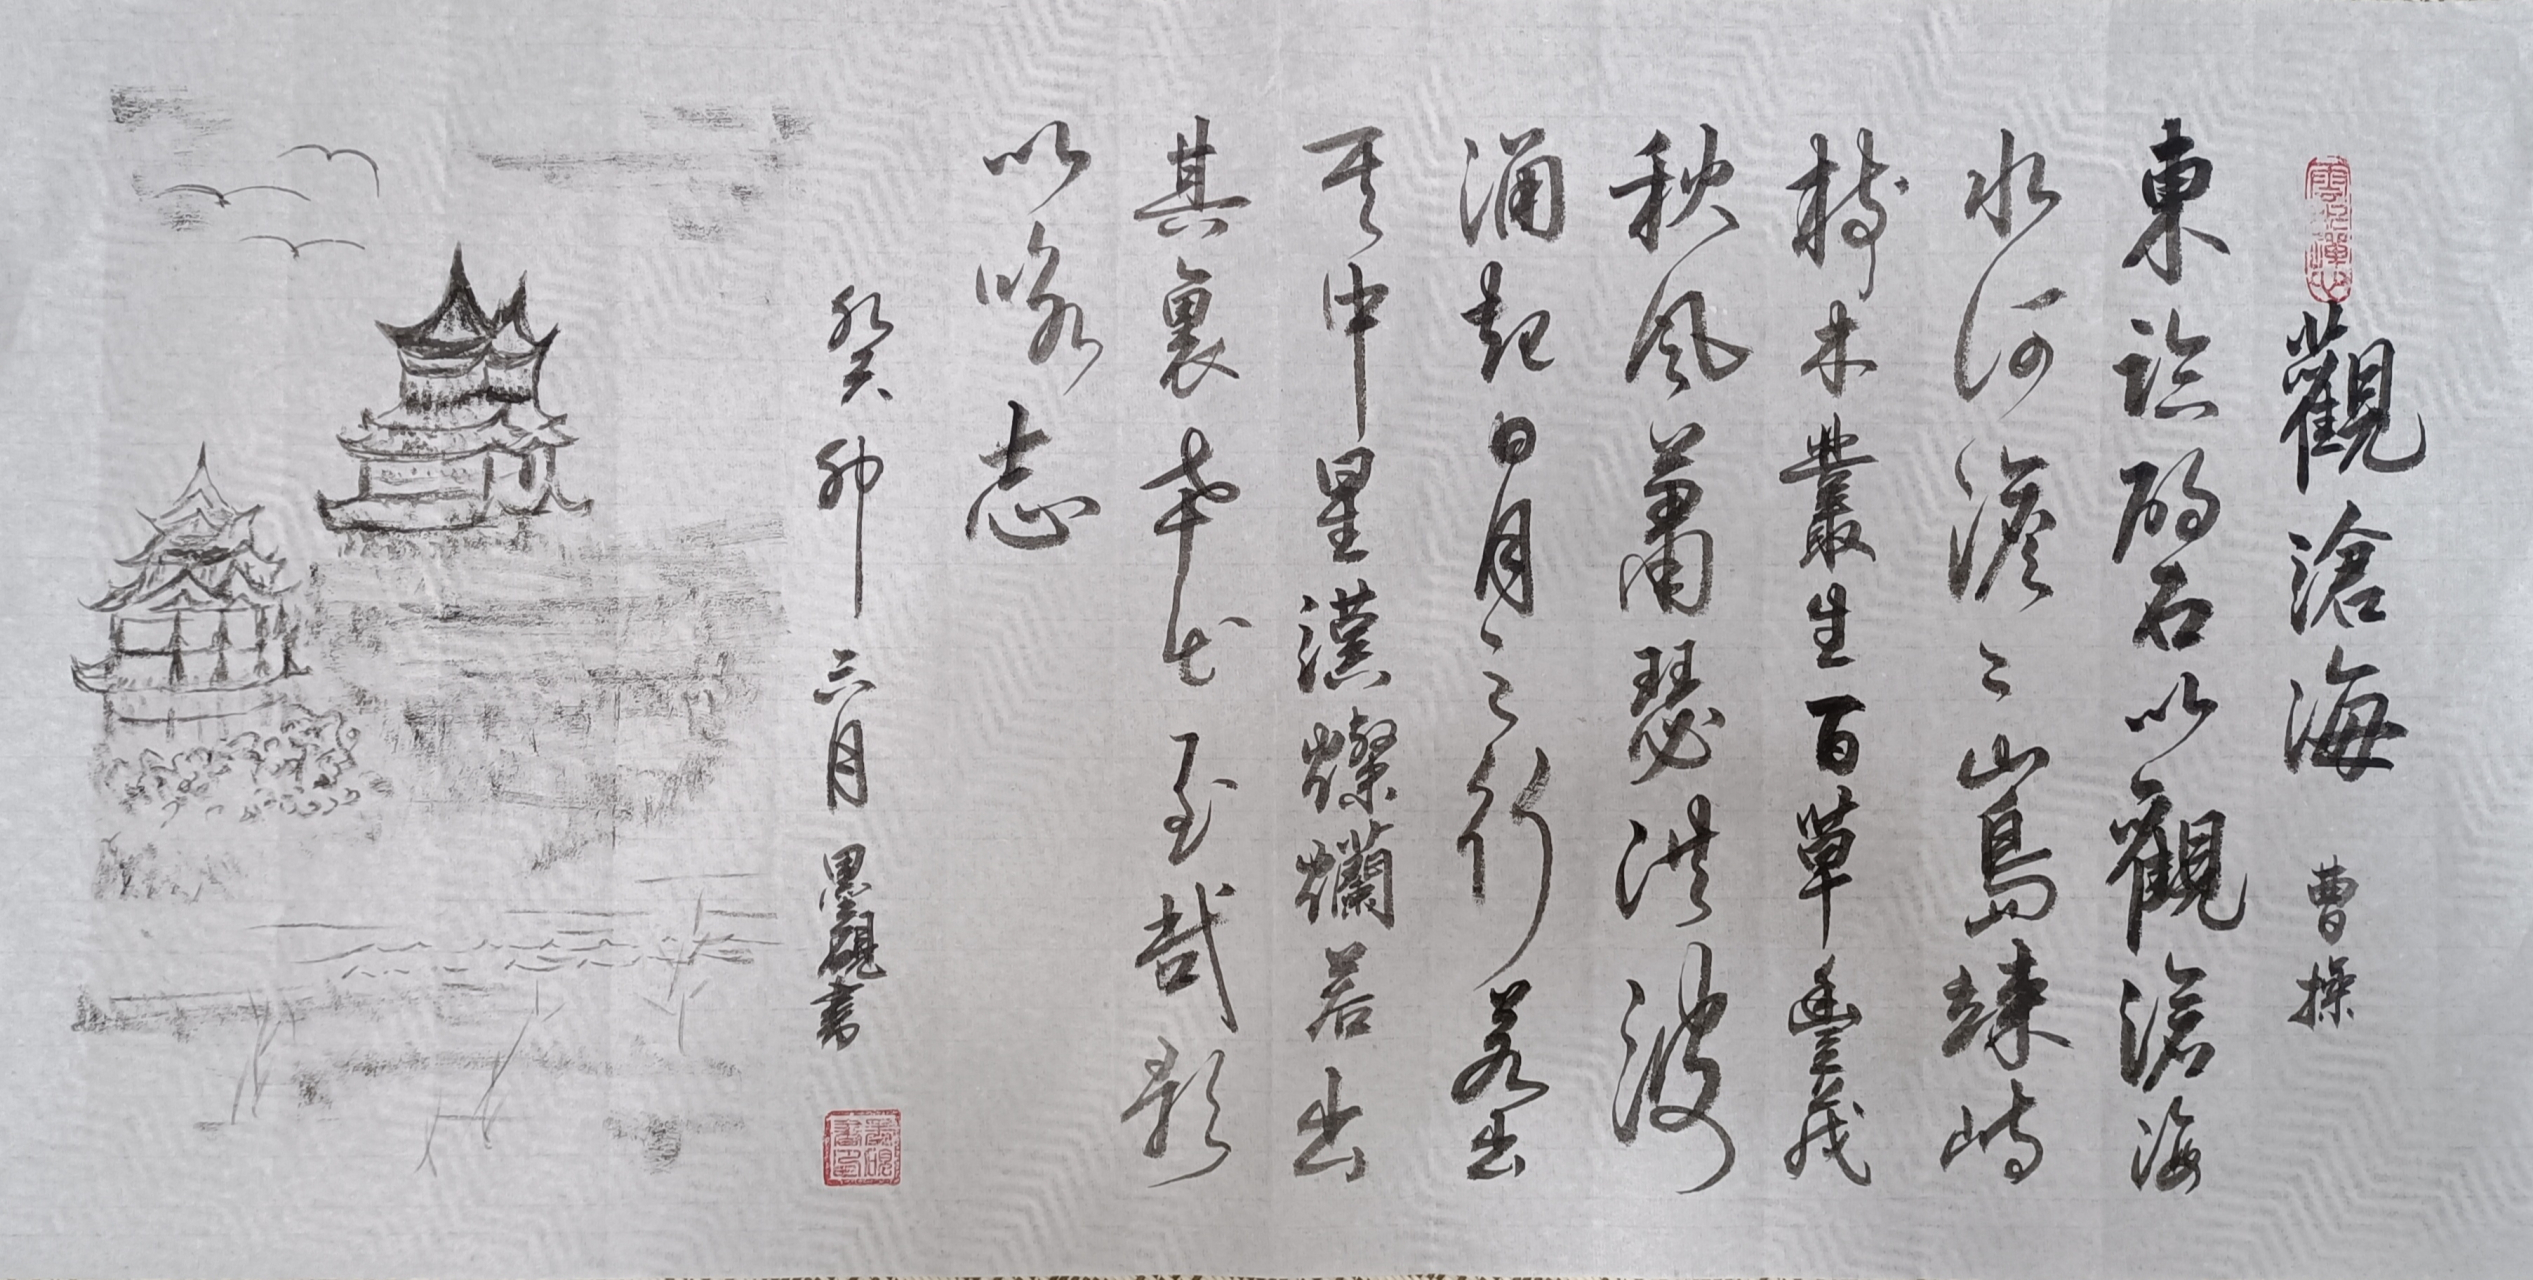 觀滄海 曹操
東臨碣石以觀滄海
水何澹々山島竦峙
樹木叢生百草豐茂
秋風蕭瑟洪波
涌起日月之行若出
其中星漢燦爛若出
其裏幸甚至哉歌
以詠志
癸卯三月墨硯書
墨硯書印